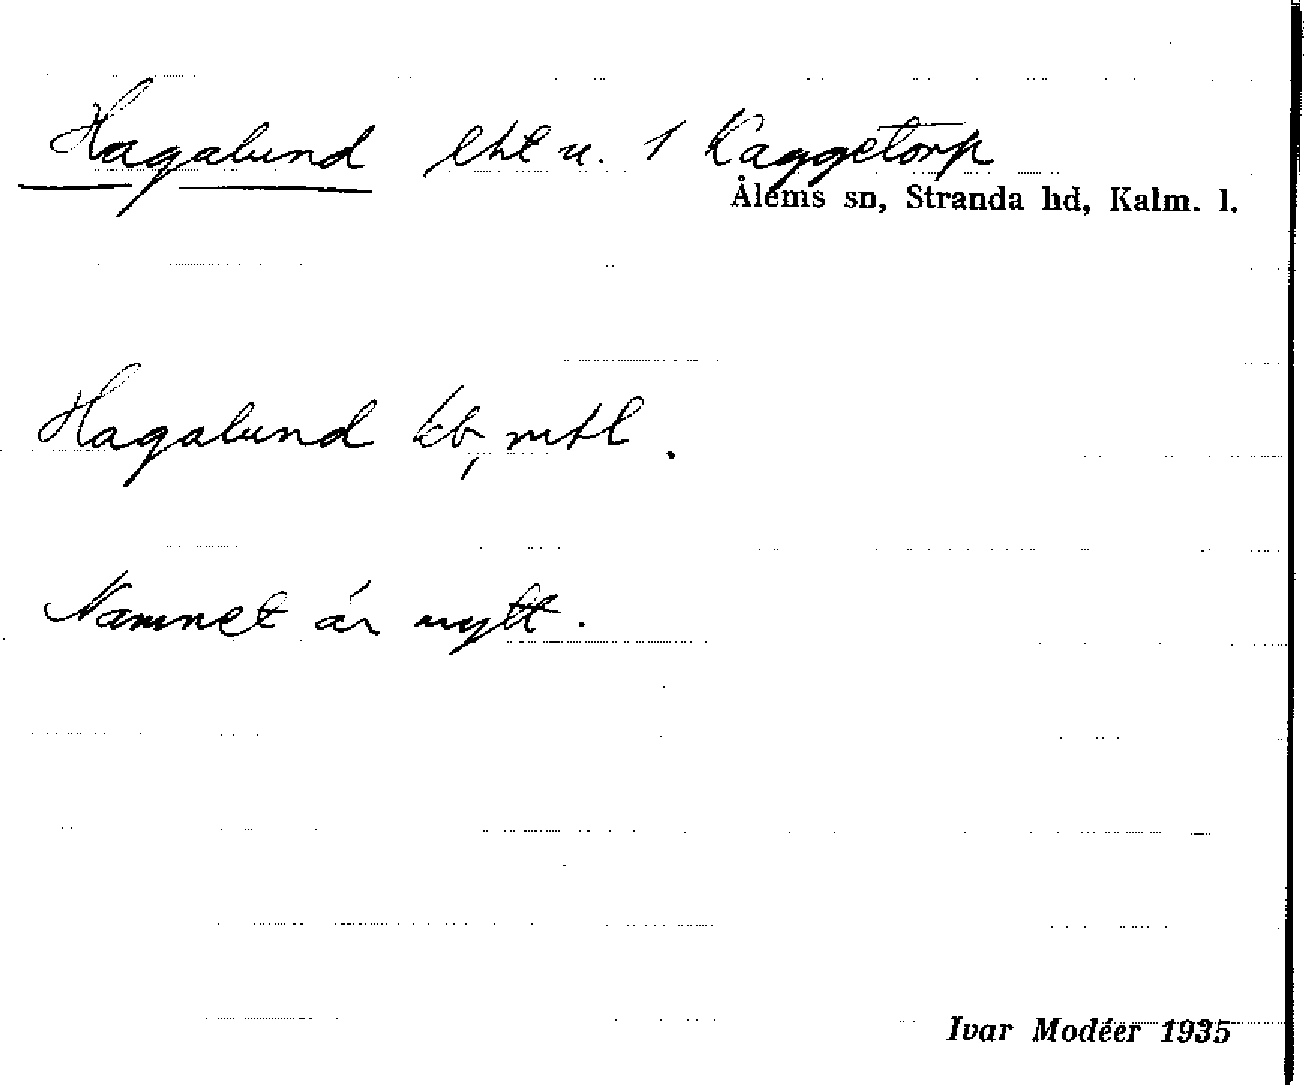 Hagalund lht u. 1 Kaggetorp
Ålems sn, Stranda hd, Kalm. l.
Hagalund kb, mtl.
Namnet är nytt.
Ivar Modéer 1935